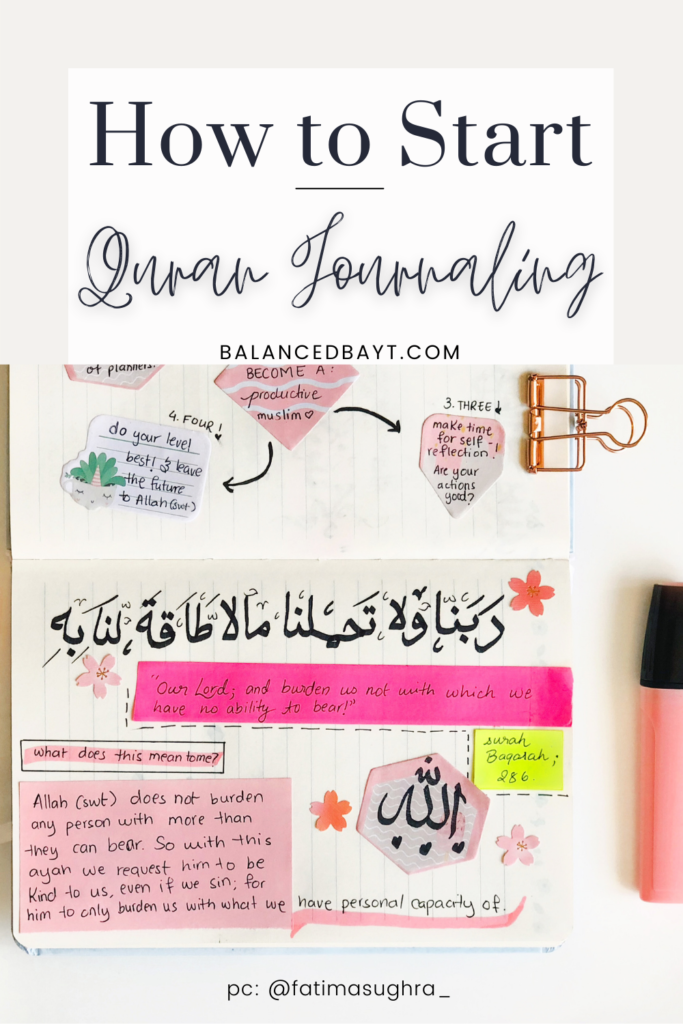 How to Start
Quran Journaling
BALANCEDBAYT.COM
of planners!
BECOME A:
productive
muslim♡
3. THREE!
make time
for self-
reflection!
Are your
actions
good?
4. FOUR!
do your level
best! & leave
the future
to Allah (swt)
رَبَّنَا وَلَا تَحَمِلنَا مَالَا طَاقَةَ لَنَا بِهِ
"Our Lord; and burden us not with which we
have no ability to bear!"
surah
Baqarah;
286.
what does this mean to me?
Allah (swt) does not burden
any person with more than
they can bear. So with this
ayah we request him to be
kind to us, even if we sin; for
him to only burden us with what we have personal capacity of.
الله
pc: @fatimasughra_